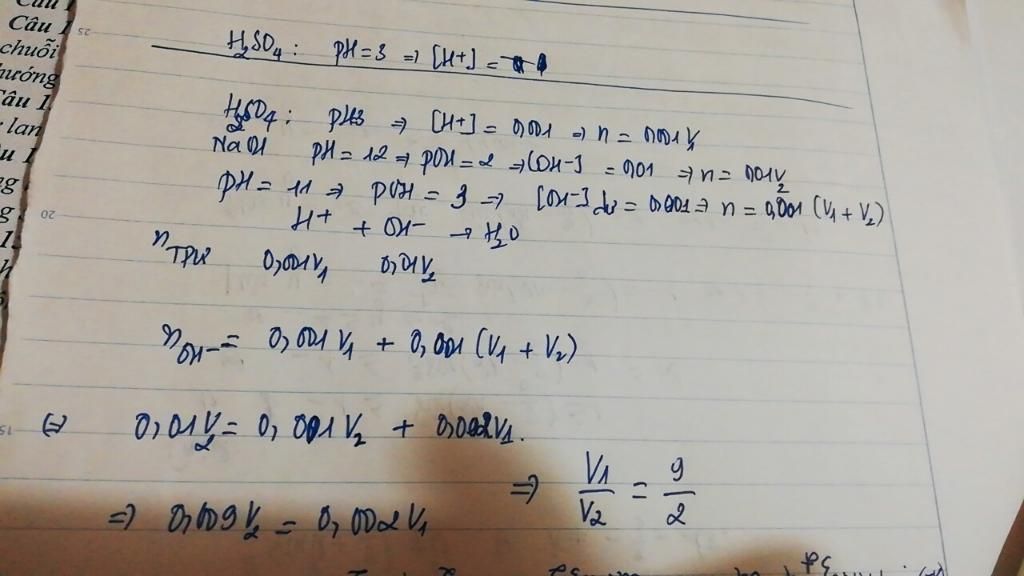 Câu 1
chuỗi
hướng
Câu 1
lan
25
H₂SO₄ : pH = 3 ⇒ [H+] =
H₂SO₄ : pH=3 ⇒ [H+] = 0,001 ⇒ n = 0,001V₁
NaOH pH = 12 ⇒ pOH = 2 ⇒ [OH-] = 0,01 ⇒ n = 0,01V₂
pH = 11 ⇒ pOH = 3 ⇒ [OH-] dư = 0,001 ⇒ n = 0,001 (V₁ + V₂)
20
H+ + OH- → H₂O
n TPƯ 0,001V₁ 0,01V₂
n OH- = 0,001 V₁ + 0,001 (V₁ + V₂)
15
⇔ 0,01V₂ = 0,001V₂ + 0,002V₁.
⇒ 0,009V₂ = 0,002V₁ ⇒ V₁/V₂ = 9/2